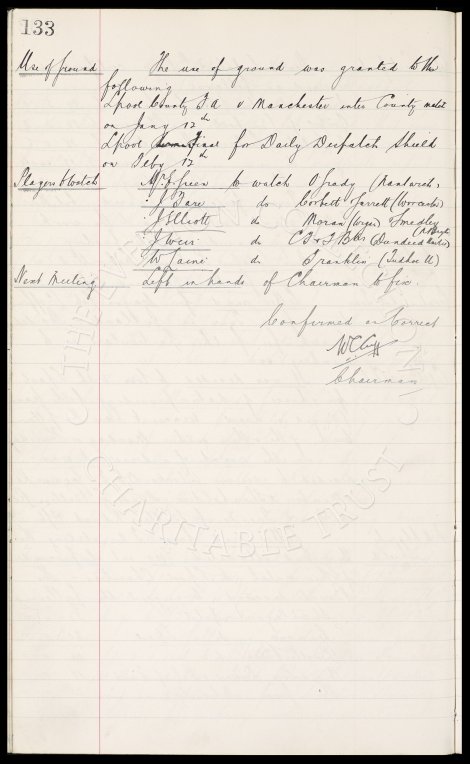 133
Use of Ground The use of ground was granted to the
following
Lpool County F A v Manchester inter County match
on Jany 12th
Lpool Final for Daily Despatch Shield
on Feby 12th
Players to watch Mr E Green to watch O'Grady (Nantwich)
J Bare do Corbett Jarrett (Worcester)
J Elliott do Moran (Wigan) Smedley
J Weir do C B & F Bks (Dundee)
W Laine do Franklin (Tudhoe U)
Next Meeting Left in hands of Chairman to fix.
Confirmed as Correct
W C Cuff
Chairman
THE EVERTON COLLECTION
CHARITABLE TRUST